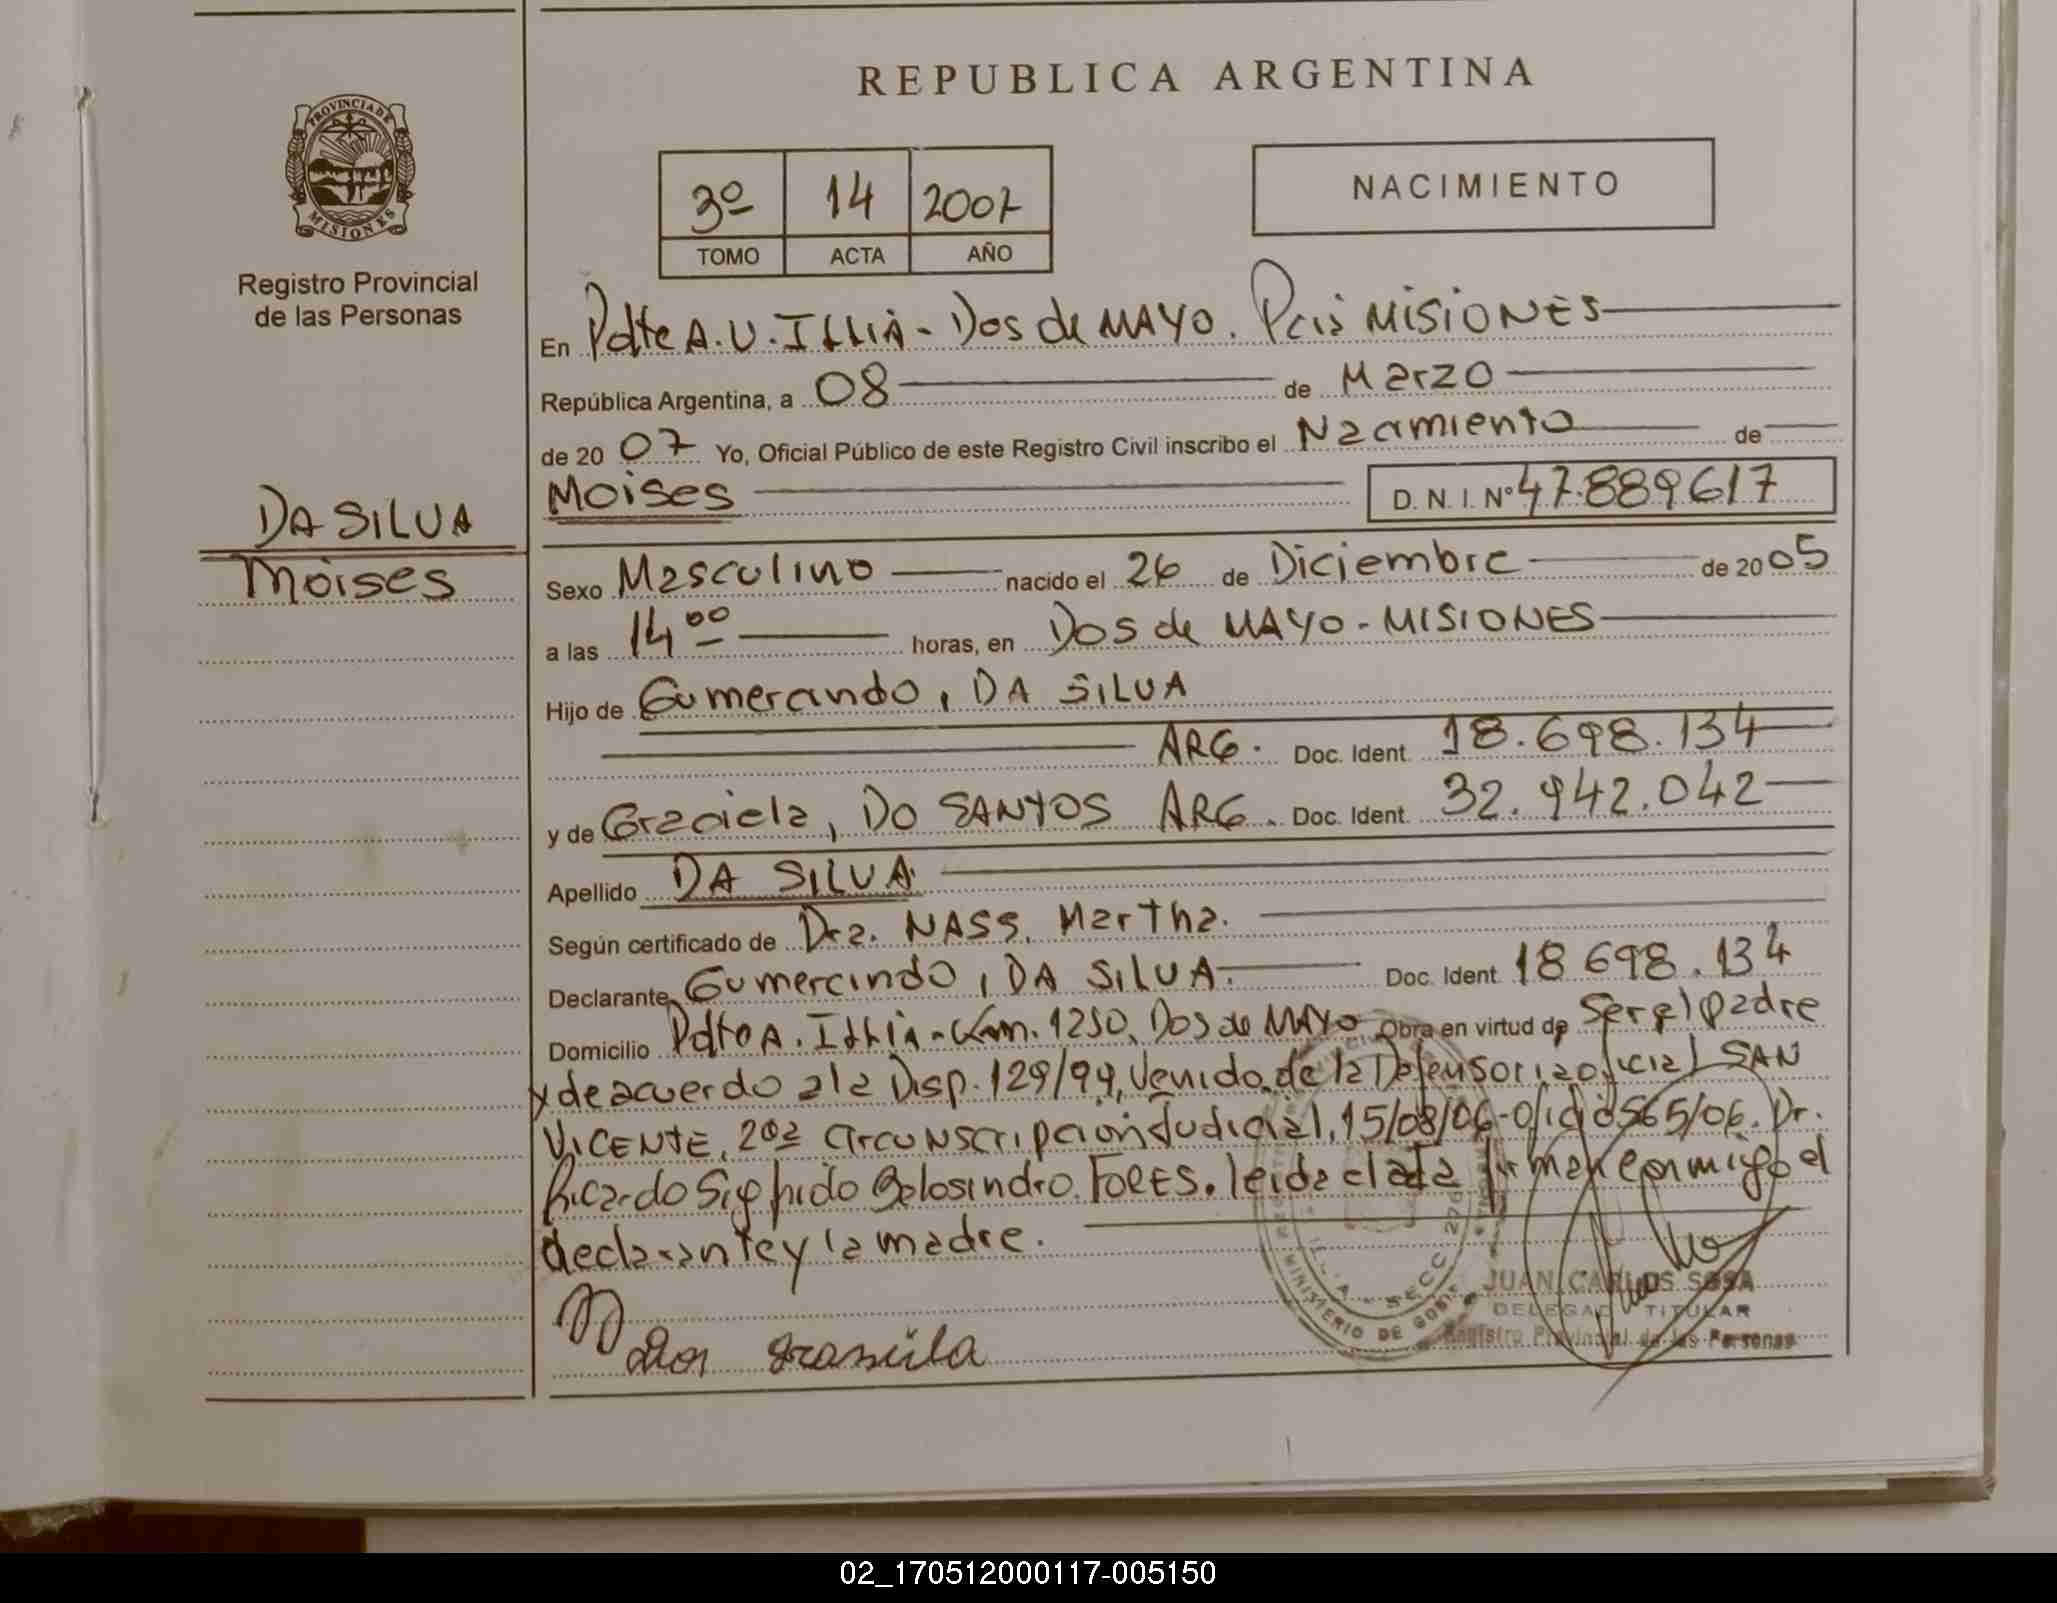 REPUBLICA ARGENTINA
PROVINCIA DE
MISIONES
Registro Provincial
de las Personas
3º 14 2007
TOMO ACTA AÑO
NACIMIENTO
En Pdte A.U. ILLIA - Dos de MAYO. Pcia MISIONES
República Argentina, a 08 de Marzo
de 20 07 Yo, Oficial Público de este Registro Civil inscribo el Nacimiento de
Moises D.N.I. Nº 47.889617
DA SILVA
Moises
Sexo Masculino nacido el 26 de Diciembre de 2005
a las 14 00 horas, en Dos de MAYO - MISIONES
Hijo de Gumercindo, DA SILVA
ARG. Doc. Ident. 18.698.134
y de Graciela, DO SANTOS ARG. Doc. Ident. 32.942.042
Apellido DA SILVA
Según certificado de Dra. NASS, Martha.
Declarante Gumercindo, DA SILVA. Doc. Ident. 18 698.134
Domicilio Pdte A. Illia - Km. 1250, Dos de MAYO Obra en virtud de Ser el padre
y de acuerdo a la Disp. 129/99, Venido de la Defensoria oficial SAN
VICENTE, 2da circunscripcion Judicial, 15/08/06 - Oficio 565/06. Dr.
Ricardo Sigfrido Belosindro FORES. leida el acta firman conmigo el
declarante y la madre.
JUAN CARLOS SOSA
DELEGADO TITULAR
Registro Provincial de las Personas
MINISTERIO DE
02_170512000117-005150